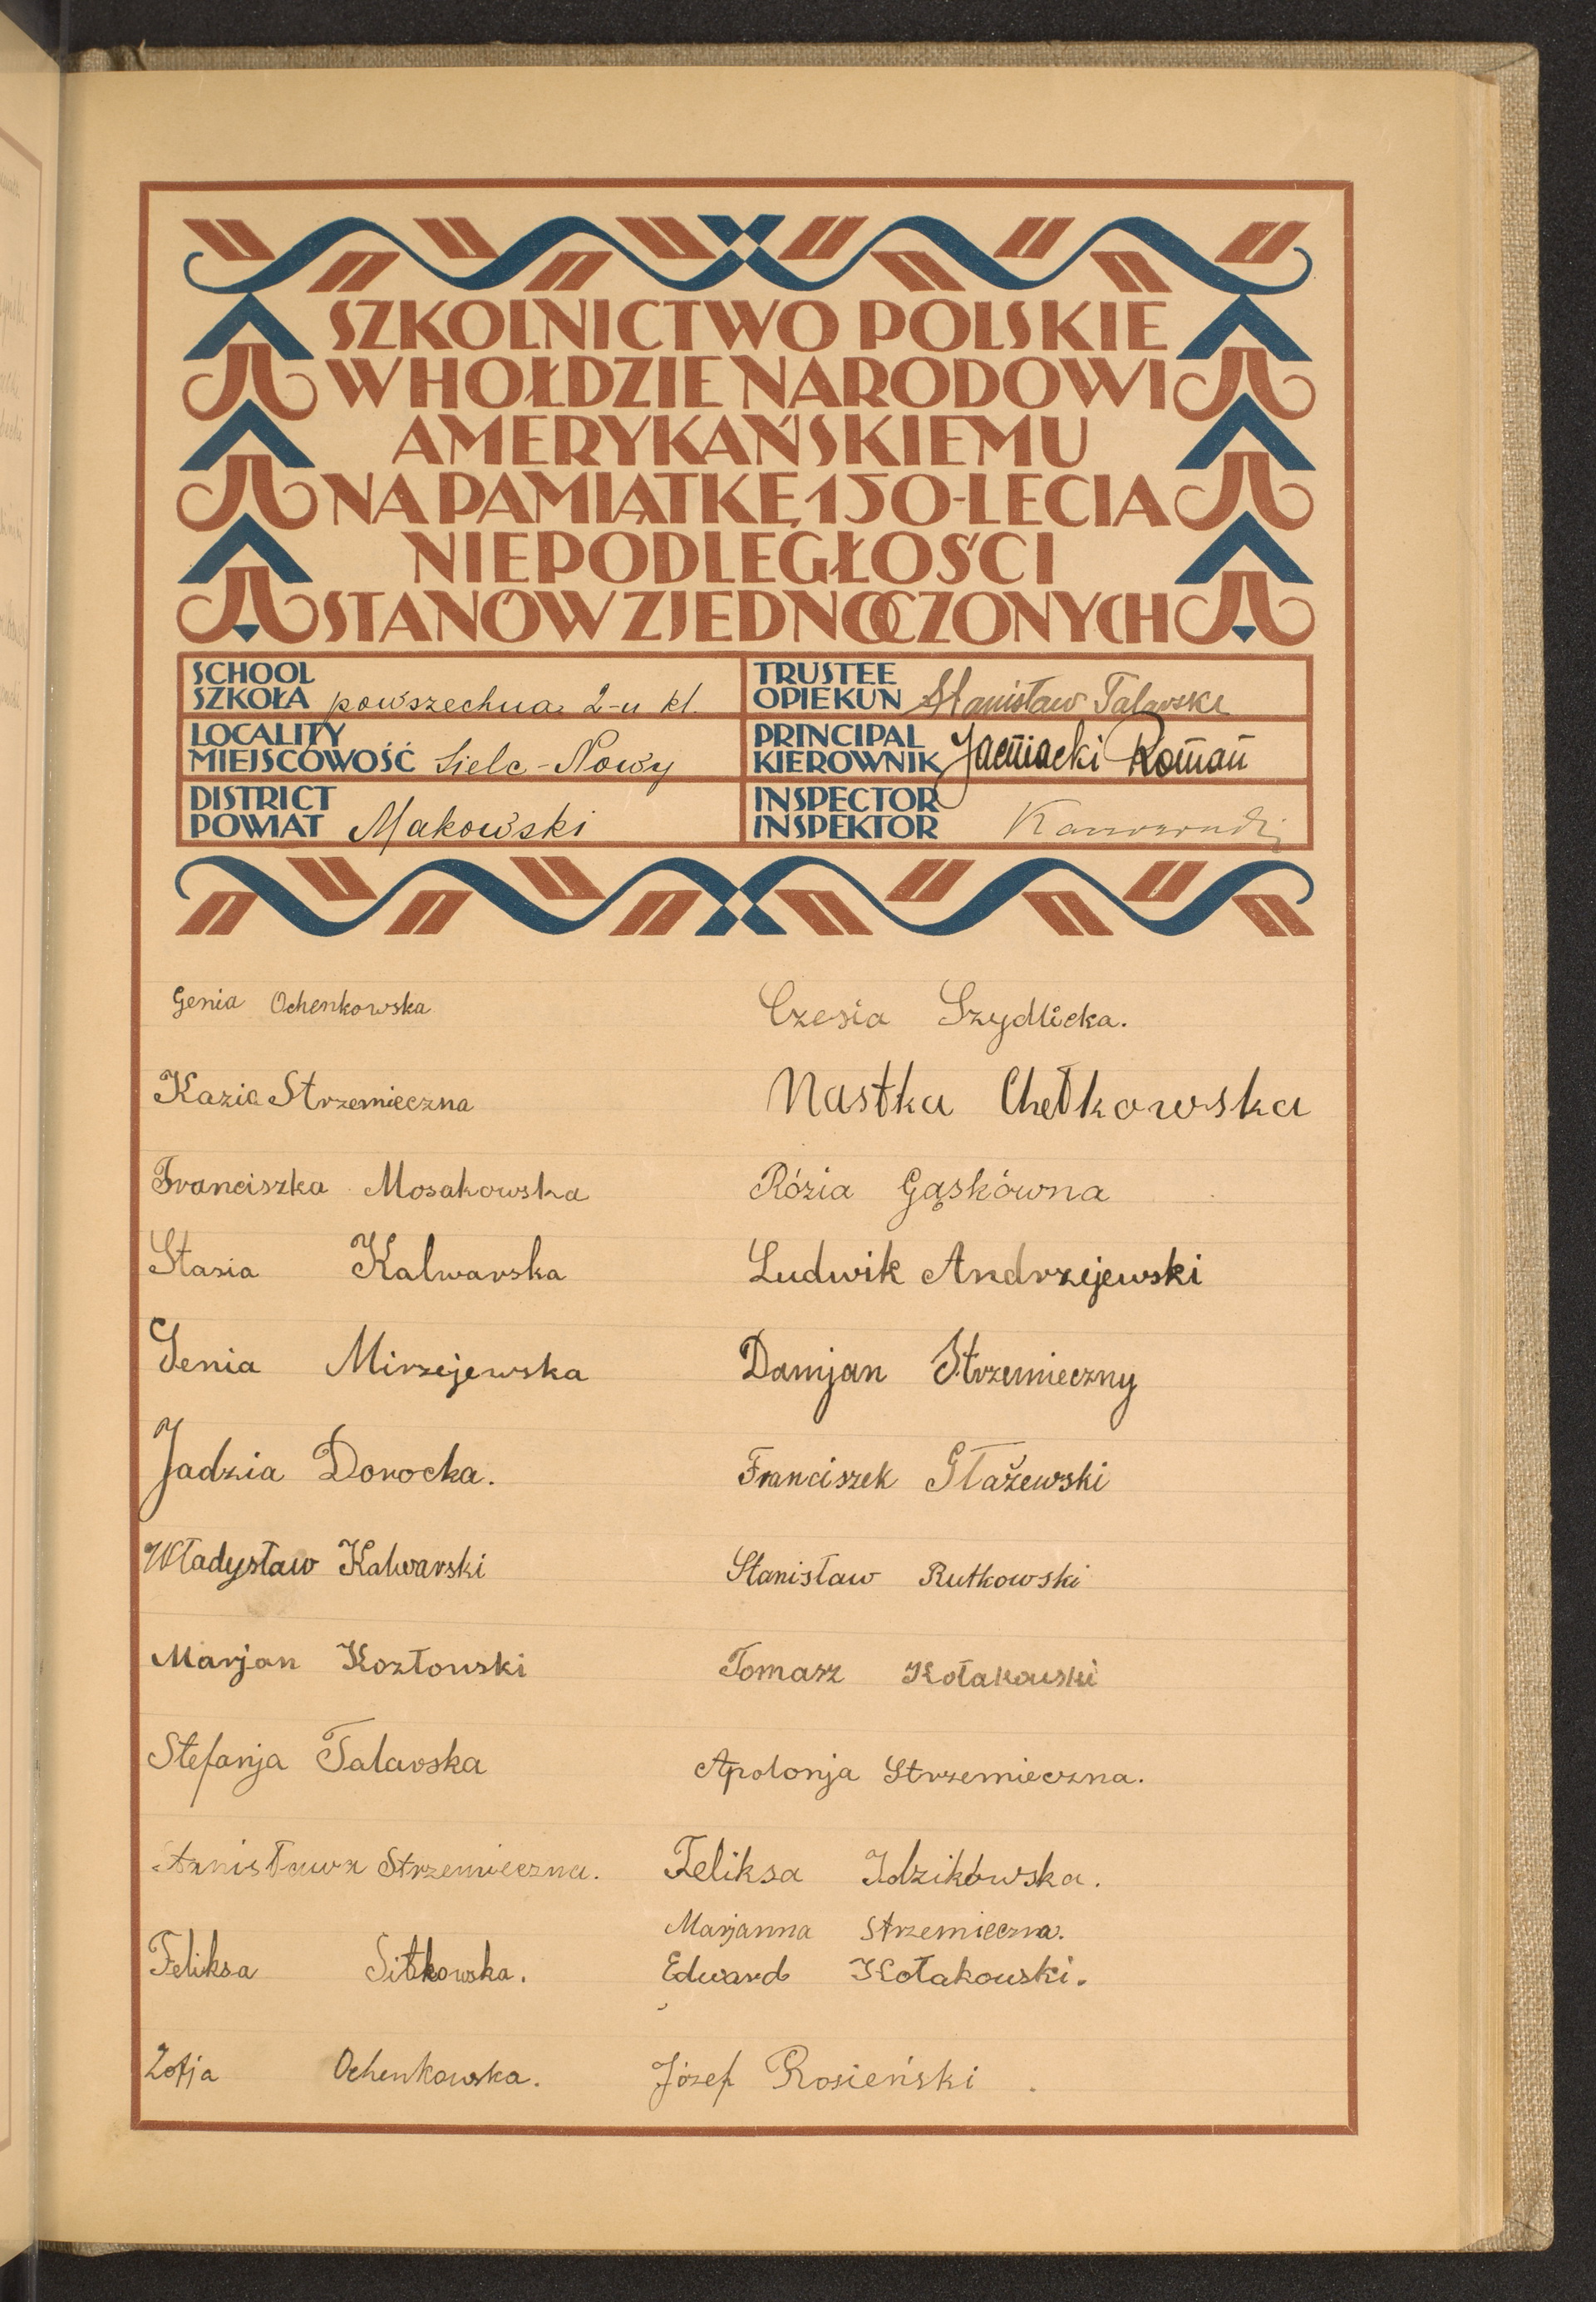 SZKOLNICTWO POLSKIE
W HOŁDZIE NARODOWI
AMERYKAŃSKIEMU
NA PAMIĄTKĘ 150-LECIA
NIEPODLEGŁOŚCI
STANÓW ZJEDNOCZONYCH
SCHOOL
SZKOŁA powszechna 2-u kl.
TRUSTEE
OPIEKUN Stanisław Talarski
LOCALITY
MIEJSCOWOŚĆ Sielc-Nowy
PRINCIPAL
KIEROWNIK Roman
DISTRICT
POWIAT Makowski
INSPECTOR
INSPEKTOR
Genia Ochenkowska
Kazia Strzemieczna
Franciszka Mosakowska
Stasia Kalwarska
Genia Mirzejewska
Jadzia Dorocka.
Władysław Kalwarski
Marjan Kozłowski
Stefanja Talarska
Stanisława Strzemieczna.
Feliksa Sitkowska.
Zofja Ochenkowska.
Czesia Szydlicka.
Nastka Chełkowska
Rózia Gąskówna
Ludwik Andrzejewski
Damjan Strzemieczny
Franciszek Głażewski
Stanisław Rutkowski
Tomasz Kołakowski
Apolonja Strzemieczna.
Feliksa Idzikowska.
Marjanna Strzemieczna.
Edward Kołakowski.
Józef Rosieński